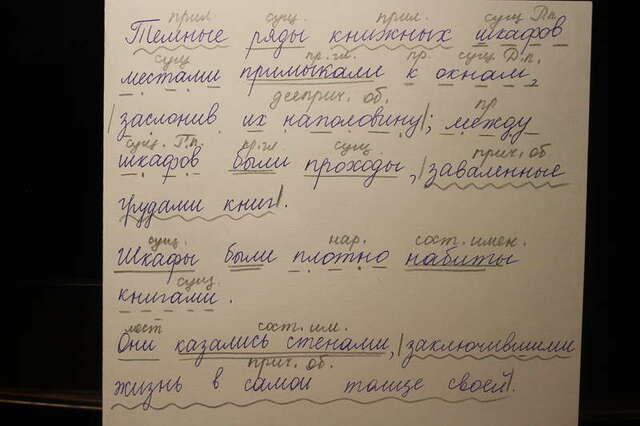 прил. сущ. прил. сущ Р.п.
Темные ряды книжных шкафов
сущ пр. гл. пр. сущ. Д.п.
местами примыкали к окнам,
дееприч. об. пр
заслонив их наполовину; между
сущ. Р.п. пр. гл. сущ. прич. об.
шкафов были проходы, заваленные
грудами книг.
сущ. нар. сост. имен.
Шкафы были плотно набиты
сущ.
книгами.
мест сост. им.
Они казались стенами, заключившими
прич. об.
жизнь в самой толще своей.